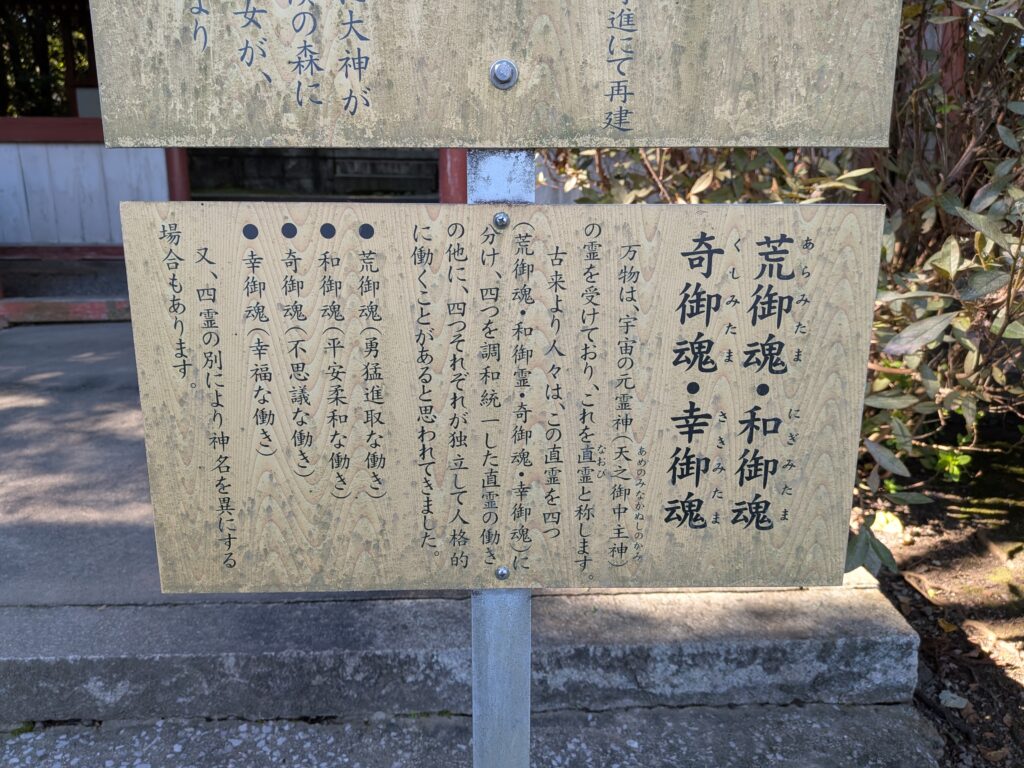 進にて再建
大神が
の森に
女が、
より
あらみたま　にぎみたま
荒御魂・和御魂
くしみたま　さきみたま
奇御魂・幸御魂
あめのみなかぬしのかみ
万物は、宇宙の元霊神(天之御中主神)
なおび
の霊を受けており、これを直霊と称します。
古来より人々は、この直霊を四つ
(荒御魂・和御霊・奇御魂・幸御魂)に
分け、四つを調和統一した直霊の働き
の他に、四つそれぞれが独立して人格的
に働くことがあると思われてきました。
●荒御魂(勇猛進取な働き)
●和御魂(平安柔和な働き)
●奇御魂(不思議な働き)
●幸御魂(幸福な働き)
又、四霊の別により神名を異にする
場合もあります。